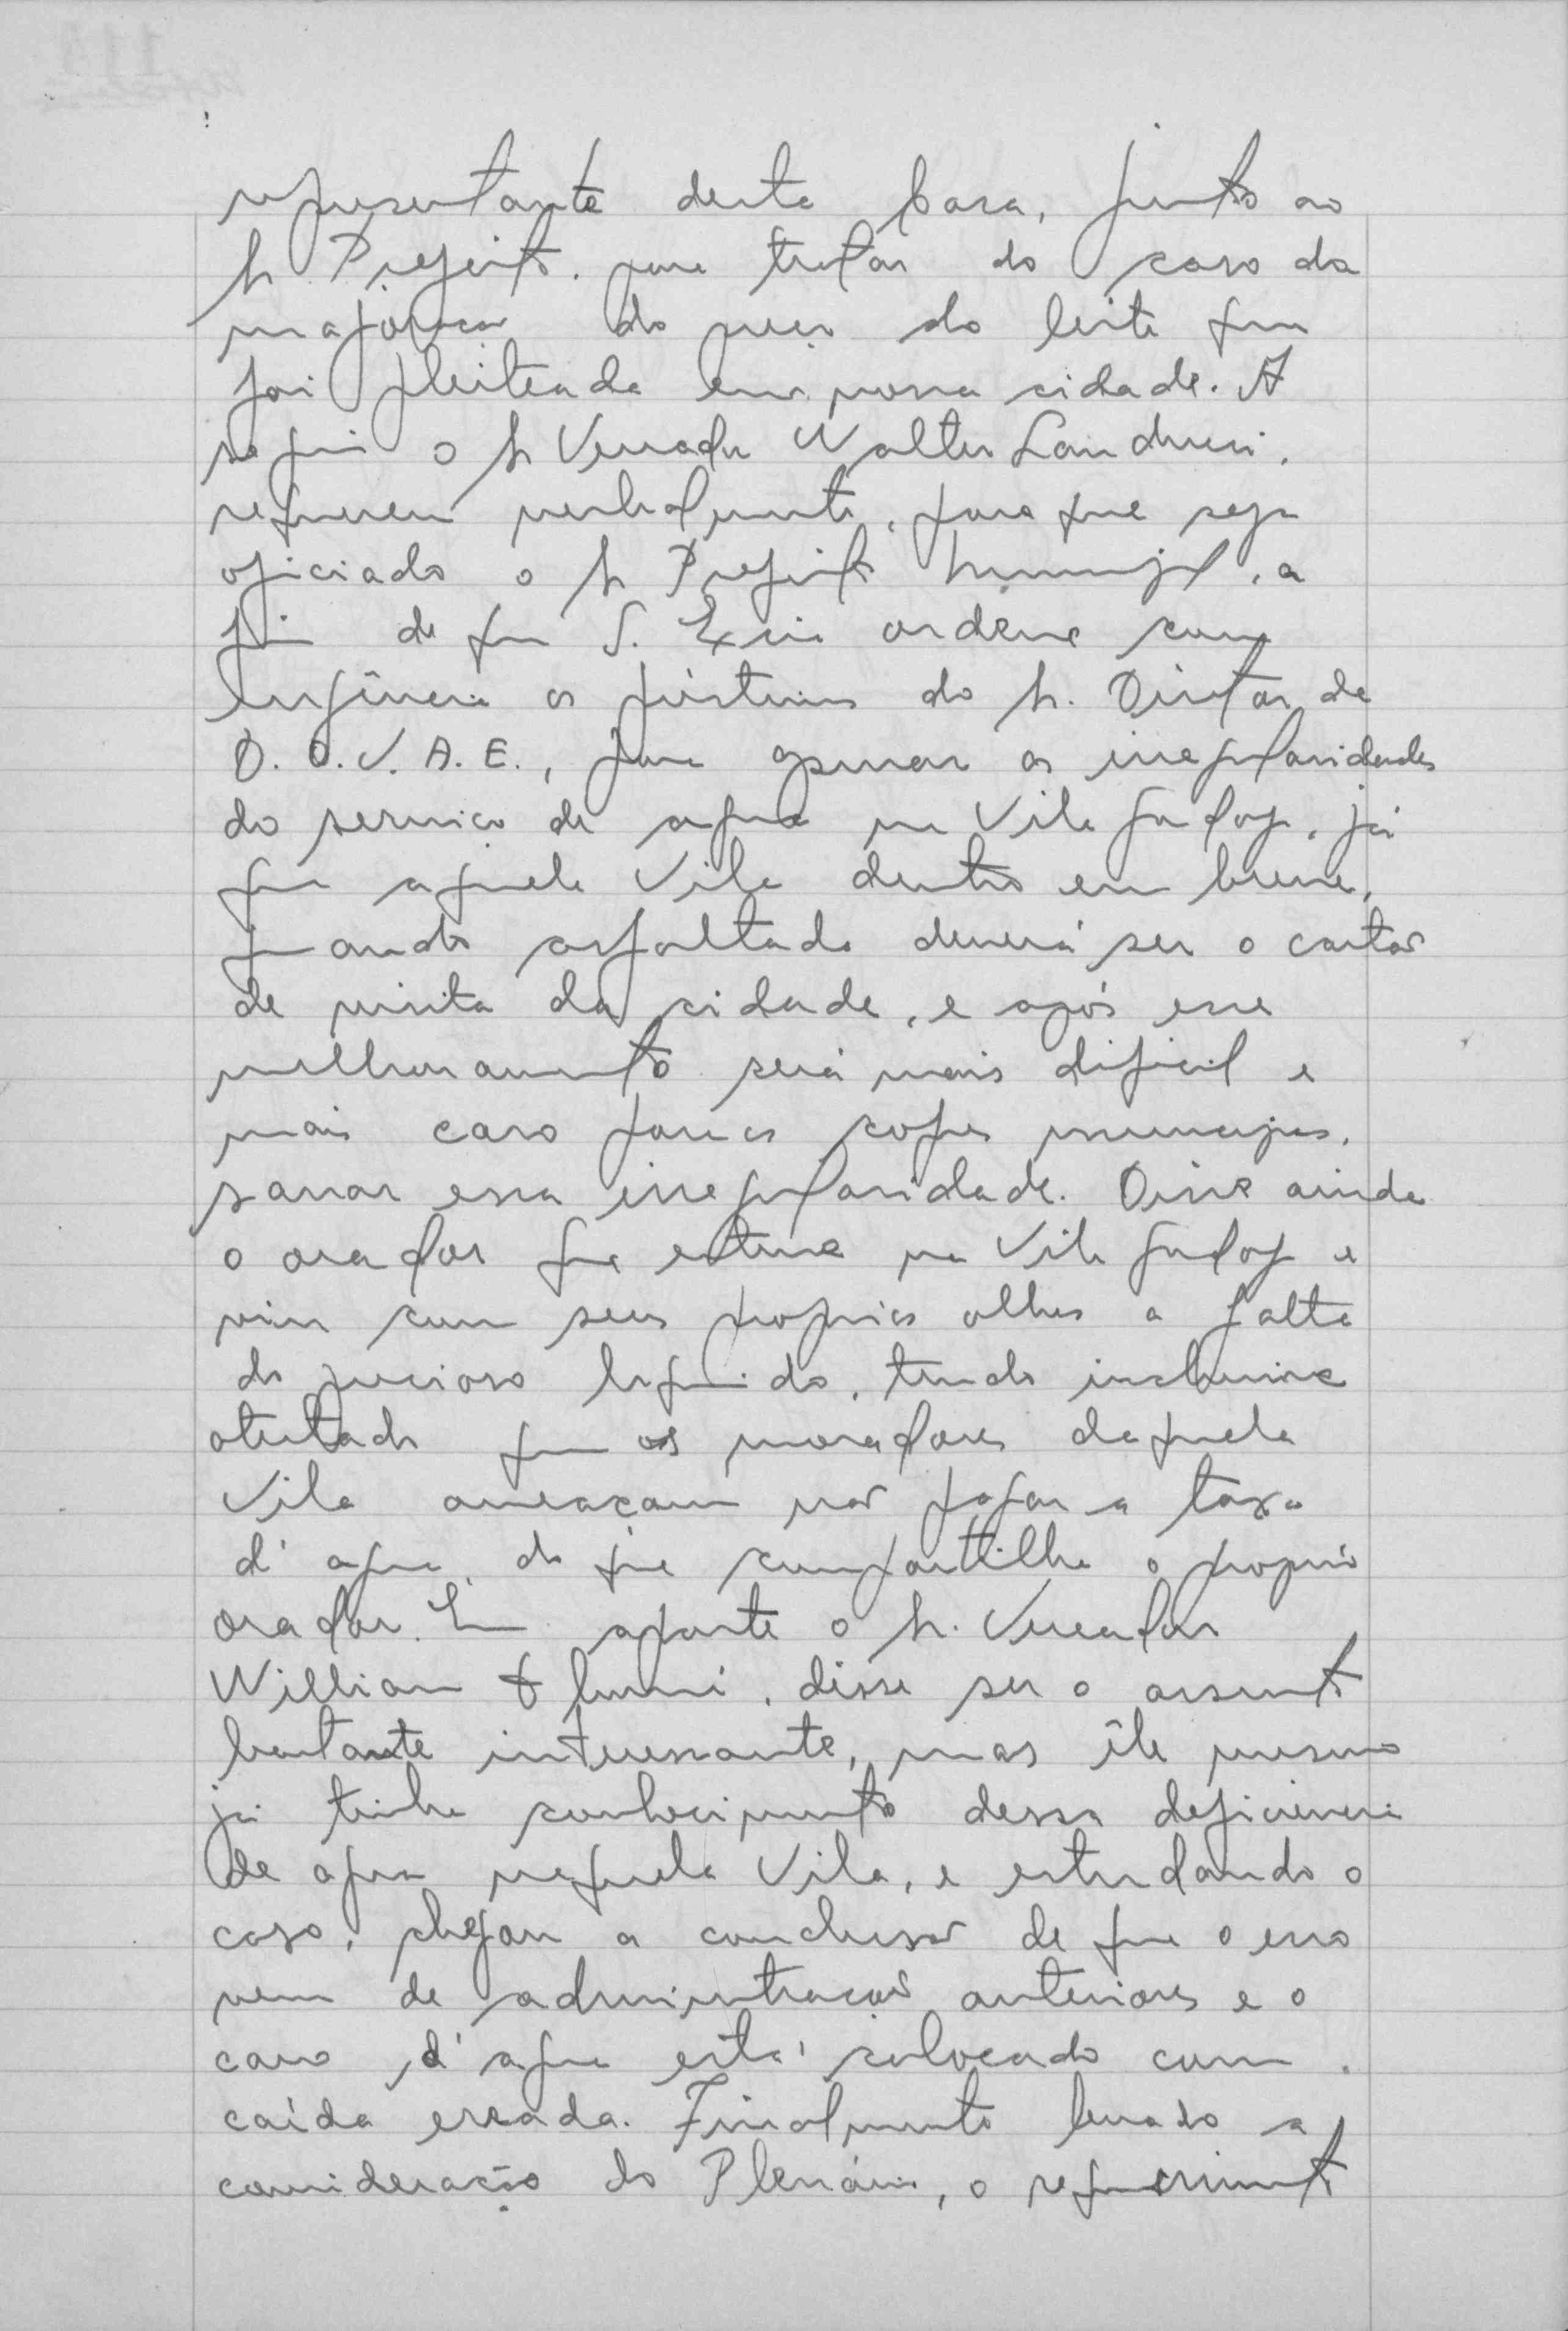 representante desta Casa, junto ao
Sr Prefeito. para tratar do caso da
majoração do preço do leite que
foi pleiteada em nossa cidade. A
seguir o Sr Vereador Walter
requereu verbalmente, para que seja
oficiado o Sr Prefeito Municipal, a
fim de que S. Excia ordene com
urgência os préstimos do Sr. Diretor da
D. O. V. A. E., para as irregularidades
do serviço de agua na Vila Godoy, já
que aquela Vila dentro em breve,
quando asfaltada deverá ser o cartão
de visita da cidade, e após esse
melhoramento será mais dificil e
mais caro para os cofres municipais,
sanar essa irregularidade. Disse ainda
o orador que esteve na Vila Godoy e
viu com seus proprios olhos a falta
do precioso liquido, tendo inclusive
que os moradores daquela
Vila ameaçam não pagar a taxa
d'agua, do que compartilha o proprio
orador. Em aparte o Sr. Vereador
Willian disse ser o assunto
bastante interessante, mas êle mesmo
já tinha conhecimento dessa deficiencia
de agua naquela Vila, e estudando o
caso, chegou a conclusão de que o erro
vem de administração anteriores e o
cano d'agua está colocado com
caída errada. Finalmente levado a
consideração do Plenário, o requerimento